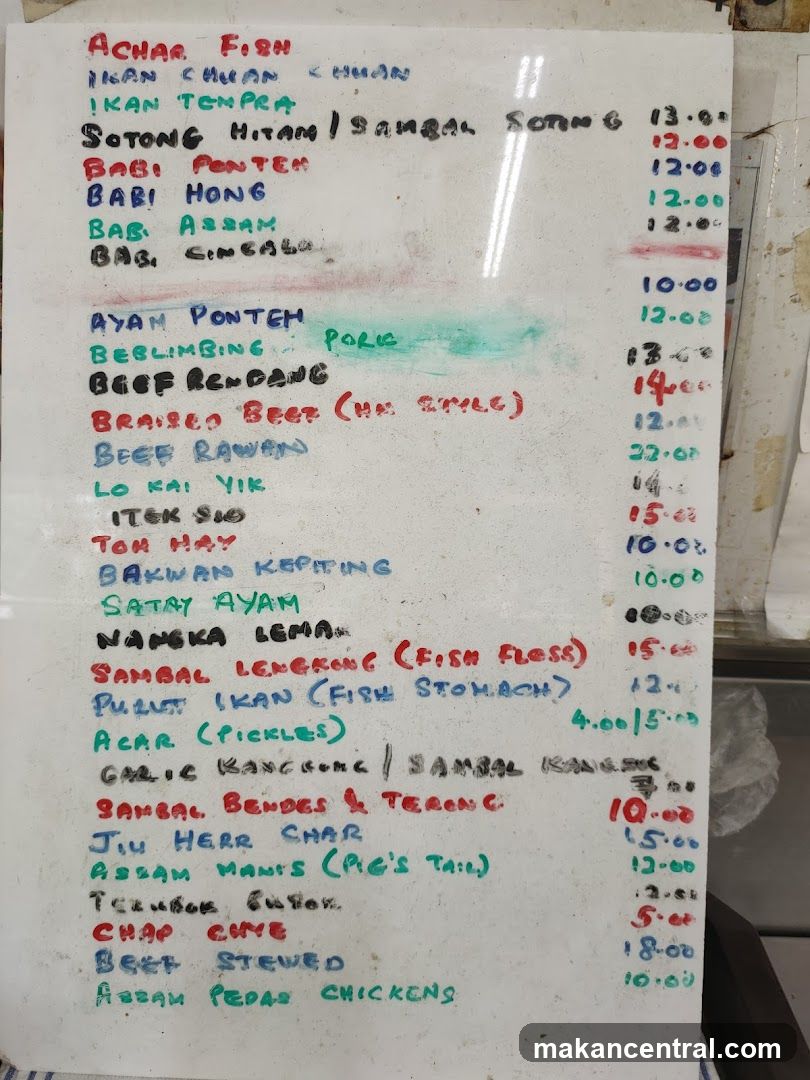 ACHAR FISH
IKAN CHUAN CHUAN
IKAN TEMPRA
SOTONG HITAM / SAMBAL SOTING 13.00
BABI PONTEH 12.00
BABI HONG 12.00
BABI ASSAM 12.00
BABI CINCALU 12.00
AYAM PONTEH 10.00
BEBLIMBING PORK 12.00
BEEF RENDANG 13.00
BRAISED BEEF (HK STYLE) 14.00
BEEF RAWAN 12.00
LO KAI YIK 22.00
ITEK SIO 14.
TOH HAY 15.00
BAKWAN KEPITING 10.00
SATAY AYAM 10.00
NANGKA LEMAK 10.00
SAMBAL LENGKONG (FISH FLOSS) 15.00
PURUT IKAN (FISH STOMACH) 12.
ACAR (PICKLES) 4.00/5.00
GARLIC KANGKONG / SAMBAL KANGKONG
SAMBAL BENDES & TERONG 10.00
JIU HERR CHAR 15.00
ASSAM MANIS (PIG'S TAIL) 12.00
TERUBOK 12.00
CHAP CHYE 5.00
BEEF STEWED 18.00
ASSAM PEDAS CHICKENS 10.00
makancentral.com